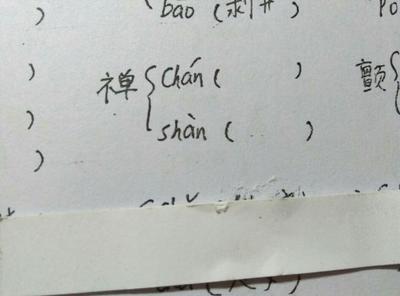 bāo (剥开)
禅 { chán ( )
shàn ( )
颤 {